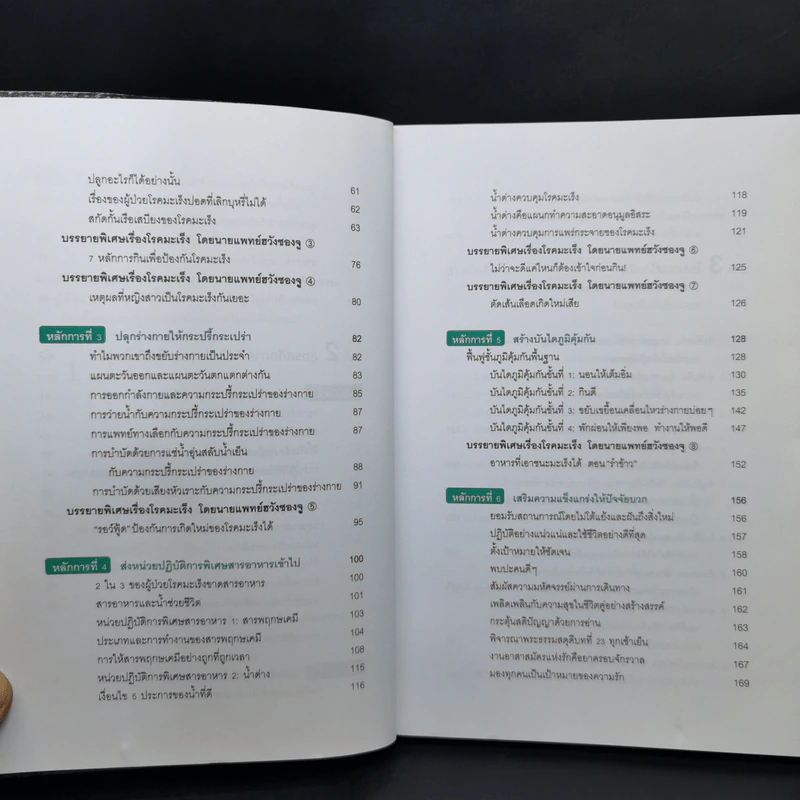 ปลูกอะไรก็ได้อย่างนั้น 61
เรื่องของผู้ป่วยโรคมะเร็งปอดที่เลิกบุหรี่ไม่ได้ 62
สกัดกั้นเรือเสบียงของโรคมะเร็ง 63
บรรยายพิเศษเรื่องโรคมะเร็ง โดยนายแพทย์ฮวังซองจู ③
7 หลักการกินเพื่อป้องกันโรคมะเร็ง 76
บรรยายพิเศษเรื่องโรคมะเร็ง โดยนายแพทย์ฮวังซองจู ④
เหตุผลที่หญิงสาวเป็นโรคมะเร็งกันเยอะ 80
หลักการที่ 3 ปลุกร่างกายให้กระปรี้กระเปร่า 82
ทำไมพวกเขาถึงขยับร่างกายเป็นประจำ 82
แผนตะวันออกและแผนตะวันตกแตกต่างกัน 83
การออกกำลังกายและความกระปรี้กระเปร่าของร่างกาย 85
การว่ายน้ำกับความกระปรี้กระเปร่าของร่างกาย 87
การแพทย์ทางเลือกกับความกระปรี้กระเปร่าของร่างกาย 87
การบำบัดด้วยการแช่น้ำอุ่นสลับน้ำเย็น
กับความกระปรี้กระเปร่าของร่างกาย 88
การบำบัดด้วยเสียงหัวเราะกับความกระปรี้กระเปร่าของร่างกาย 91
บรรยายพิเศษเรื่องโรคมะเร็ง โดยนายแพทย์ฮวังซองจู ⑤
"รอว์ฟู้ด" ป้องกันการเกิดใหม่ของโรคมะเร็งได้ 95
หลักการที่ 4 ส่งหน่วยปฏิบัติการพิเศษสารอาหารเข้าไป 100
2 ใน 3 ของผู้ป่วยโรคมะเร็งขาดสารอาหาร 100
สารอาหารและน้ำช่วยชีวิต 101
หน่วยปฏิบัติการพิเศษสารอาหาร 1: สารพฤกษเคมี 103
ประเภทและการทำงานของสารพฤกษเคมี 104
การให้สารพฤกษเคมีอย่างถูกที่ถูกเวลา 108
หน่วยปฏิบัติการพิเศษสารอาหาร 2: น้ำด่าง 115
เงื่อนไข 5 ประการของน้ำที่ดี 116
น้ำด่างควบคุมโรคมะเร็ง 118
น้ำด่างคือแผนกทำความสะอาดอนุมูลอิสระ 119
น้ำด่างควบคุมการแพร่กระจายของโรคมะเร็ง 121
บรรยายพิเศษเรื่องโรคมะเร็ง โดยนายแพทย์ฮวังซองจู ⑥
ไม่ว่าจะดีแค่ไหนก็ต้องเข้าใจก่อนกิน! 125
บรรยายพิเศษเรื่องโรคมะเร็ง โดยนายแพทย์ฮวังซองจู ⑦
ตัดเส้นเลือดเกิดใหม่เสีย 126
หลักการที่ 5 สร้างบันไดภูมิคุ้มกัน 128
ฟื้นฟูชั้นภูมิคุ้มกันพื้นฐาน 128
บันไดภูมิคุ้มกันขั้นที่ 1: นอนให้เต็มอิ่ม 130
บันไดภูมิคุ้มกันขั้นที่ 2: กินดี 135
บันไดภูมิคุ้มกันขั้นที่ 3: ขยับเขยื้อนเคลื่อนไหวร่างกายบ่อยๆ 142
บันไดภูมิคุ้มกันขั้นที่ 4: พักผ่อนให้เพียงพอ ทำงานให้พอดี 147
บรรยายพิเศษเรื่องโรคมะเร็ง โดยนายแพทย์ฮวังซองจู ⑧
อาหารที่เอาชนะมะเร็งได้ ตอน "รำข้าว" 152
หลักการที่ 6 เสริมความแข็งแกร่งให้ปัจจัยบวก 156
ยอมรับสถานการณ์โดยไม่โต้แย้งและฝันถึงสิ่งใหม่ 156
ปฏิบัติอย่างแน่วแน่และใช้ชีวิตอย่างดีที่สุด 157
ตั้งเป้าหมายให้ชัดเจน 158
พบปะคนดีๆ 160
สัมผัสความมหัศจรรย์ผ่านการเดินทาง 161
เพลิดเพลินกับความสุขในชีวิตคู่อย่างสร้างสรรค์ 162
กระตุ้นสติปัญญาด้วยการอ่าน 163
พิจารณาพระธรรมสดุดีบทที่ 23 ทุกเช้าเย็น 164
งานอาสาสมัครแห่งรักคือยาครอบจักรวาล 167
มองทุกคนเป็นเป้าหมายของความรัก 169